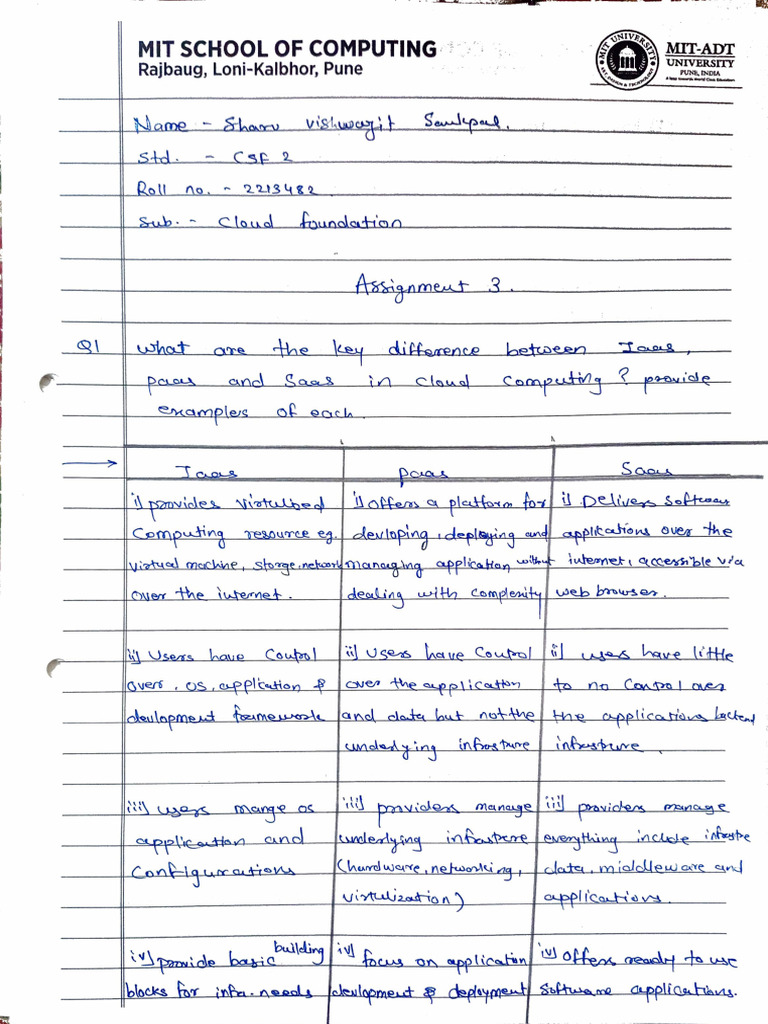 MIT SCHOOL OF COMPUTING
Rajbaug, Loni-Kalbhor, Pune
MIT UNIVERSITY
ART, DESIGN & TECHNOLOGY
MIT-ADT
UNIVERSITY
PUNE, INDIA
A leap towards World Class Education
Name - Sharv Vishwajit Sankpal.
Std. - CSF 2
Roll no. - 2213482
Sub. - Cloud foundation
Assignment 3.
Q1 What are the key difference between Iaas,
paas and Saas in cloud computing? provide
examples of each.
→ Iaas
i) provides virtulbed
computing resource eg.
virtual machine, storge, network
over the internet.
ii) Users have control
over, os, application &
devlopment framework
iii) users mange os
application and
configurations
iv) provide basic building
blocks for infra. needs
paas
i) offers a platform for
devloping, deploying and
managing application without
dealing with complexity
ii) users have control
over the application
and data but not the
underlying infrasture
iii) providers manage
underlying infrasture
(hardware, networking,
virtulization)
iv) focus on application
devlopment & deployment
Saas
i) Delivers software
applications over the
internet, accessible via
web browser.
ii) users have little
to no control over
the applications backend
infrasture.
iii) providers manage
everything include infrastre
data, middleware and
applications.
iv) offers ready to use
software applications.